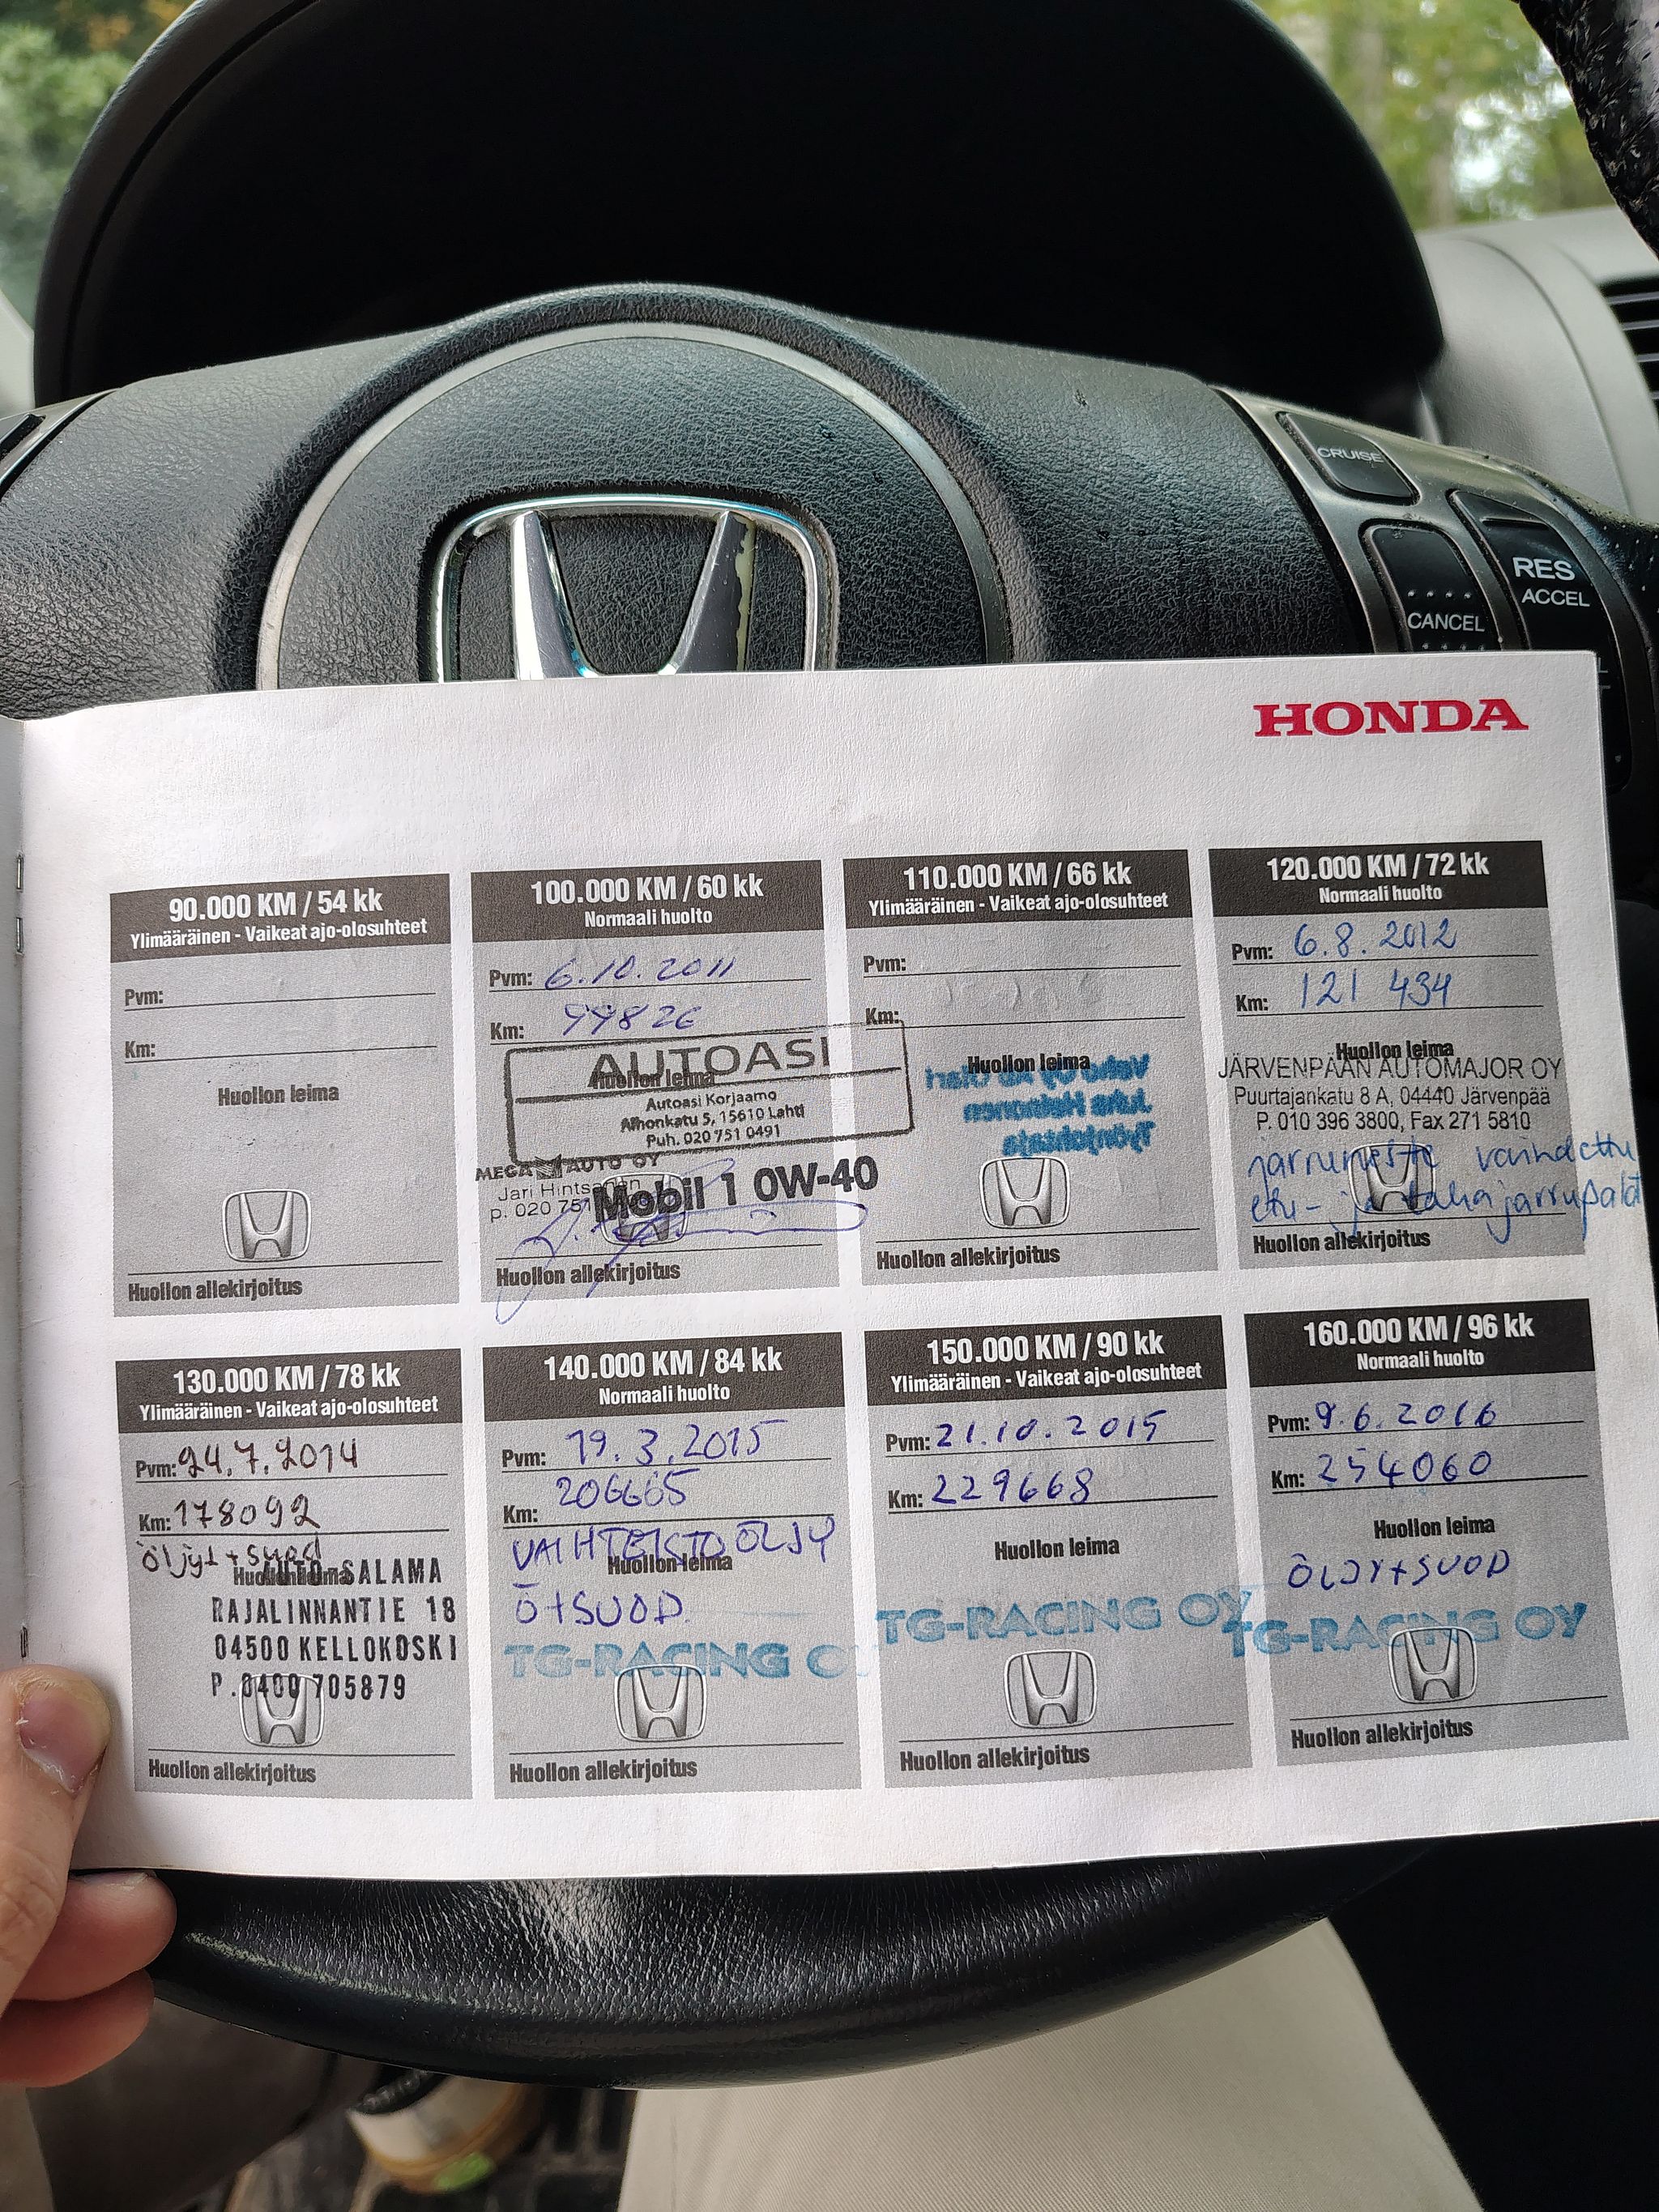 CRUISE
RES
ACCEL
CANCEL
HONDA
90.000 KM / 54 kk
Ylimääräinen - Vaikeat ajo-olosuhteet
Pvm:
Km:
Huollon leima
Huollon allekirjoitus
100.000 KM / 60 kk
Normaali huolto
Pvm: 6.10.2011
Km: 99826
Huollon leima
AUTOASI
Autoasi Korjaamo
Alhonkatu 5, 15610 Lahti
Puh. 020 751 0491
MEGA AUTO OY
Jari
p. 020 751
Mobil 1 0W-40
Huollon allekirjoitus
110.000 KM / 66 kk
Ylimääräinen - Vaikeat ajo-olosuhteet
Pvm:
Km:
Huollon leima
Veho Oy Ab Olari
Juha Heinonen
Työnjohtaja
Huollon allekirjoitus
120.000 KM / 72 kk
Normaali huolto
Pvm: 6.8.2012
Km: 121 434
Huollon leima
JÄRVENPÄÄN AUTOMAJOR OY
Puurtajankatu 8 A, 04440 Järvenpää
P. 010 396 3800, Fax 271 5810
jarruneste vaihdettu
etu- ja takajarrupalat
Huollon allekirjoitus
130.000 KM / 78 kk
Ylimääräinen - Vaikeat ajo-olosuhteet
Pvm: 24.7.2014
Km: 178092
öljyt + suod
Huollon leima
AUTO-SALAMA
RAJALINNANTIE 18
04500 KELLOKOSKI
P.0400 705879
Huollon allekirjoitus
140.000 KM / 84 kk
Normaali huolto
Pvm: 19.3.2015
Km: 206665
VAIHTEISTOÖLJY
Huollon leima
Ö+SUOD.
TG-RACING O
Huollon allekirjoitus
150.000 KM / 90 kk
Ylimääräinen - Vaikeat ajo-olosuhteet
Pvm: 21.10.2015
Km: 229668
Huollon leima
TG-RACING OY
Huollon allekirjoitus
160.000 KM / 96 kk
Normaali huolto
Pvm: 9.6.2016
Km: 254060
Huollon leima
ÖLJY+SUOD
TG-RACING OY
Huollon allekirjoitus